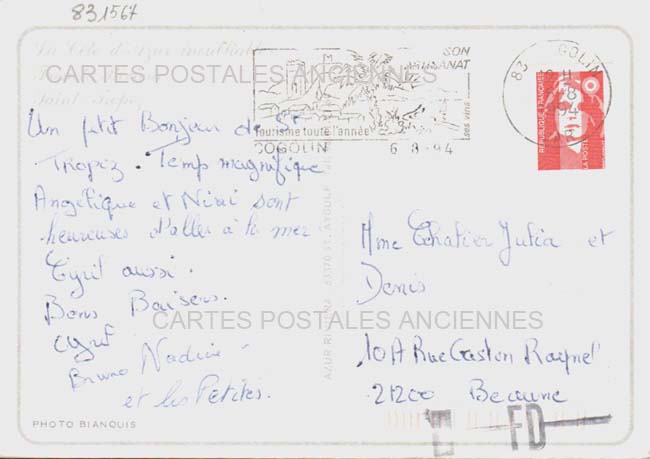 831567
La Côte d'Azur
Saint-Tropez
CARTES POSTALES ANCIENNES
SON
ARTISANAT
Tourisme toute l'année
ses vins
COGOLIN 6 8 -94
83 COGOLIN
8
94
RÉPUBLIQUE FRANÇAISE
LA POSTE
Un petit Bonjour de St
Tropez. Temp magnifique
Angélique et Nini sont
heureuses d'aller à la mer
Cyril aussi.
Bons Baisers.
Cyril
Bruno Nadine
et les Petites.
83370 ST. AYGULF
Mme Chatier Julia et
Denis
CARTES POSTALES ANCIENNES
10A Rue Gaston Roupnel
21200 Beaune
FD
PHOTO BIANQUIS